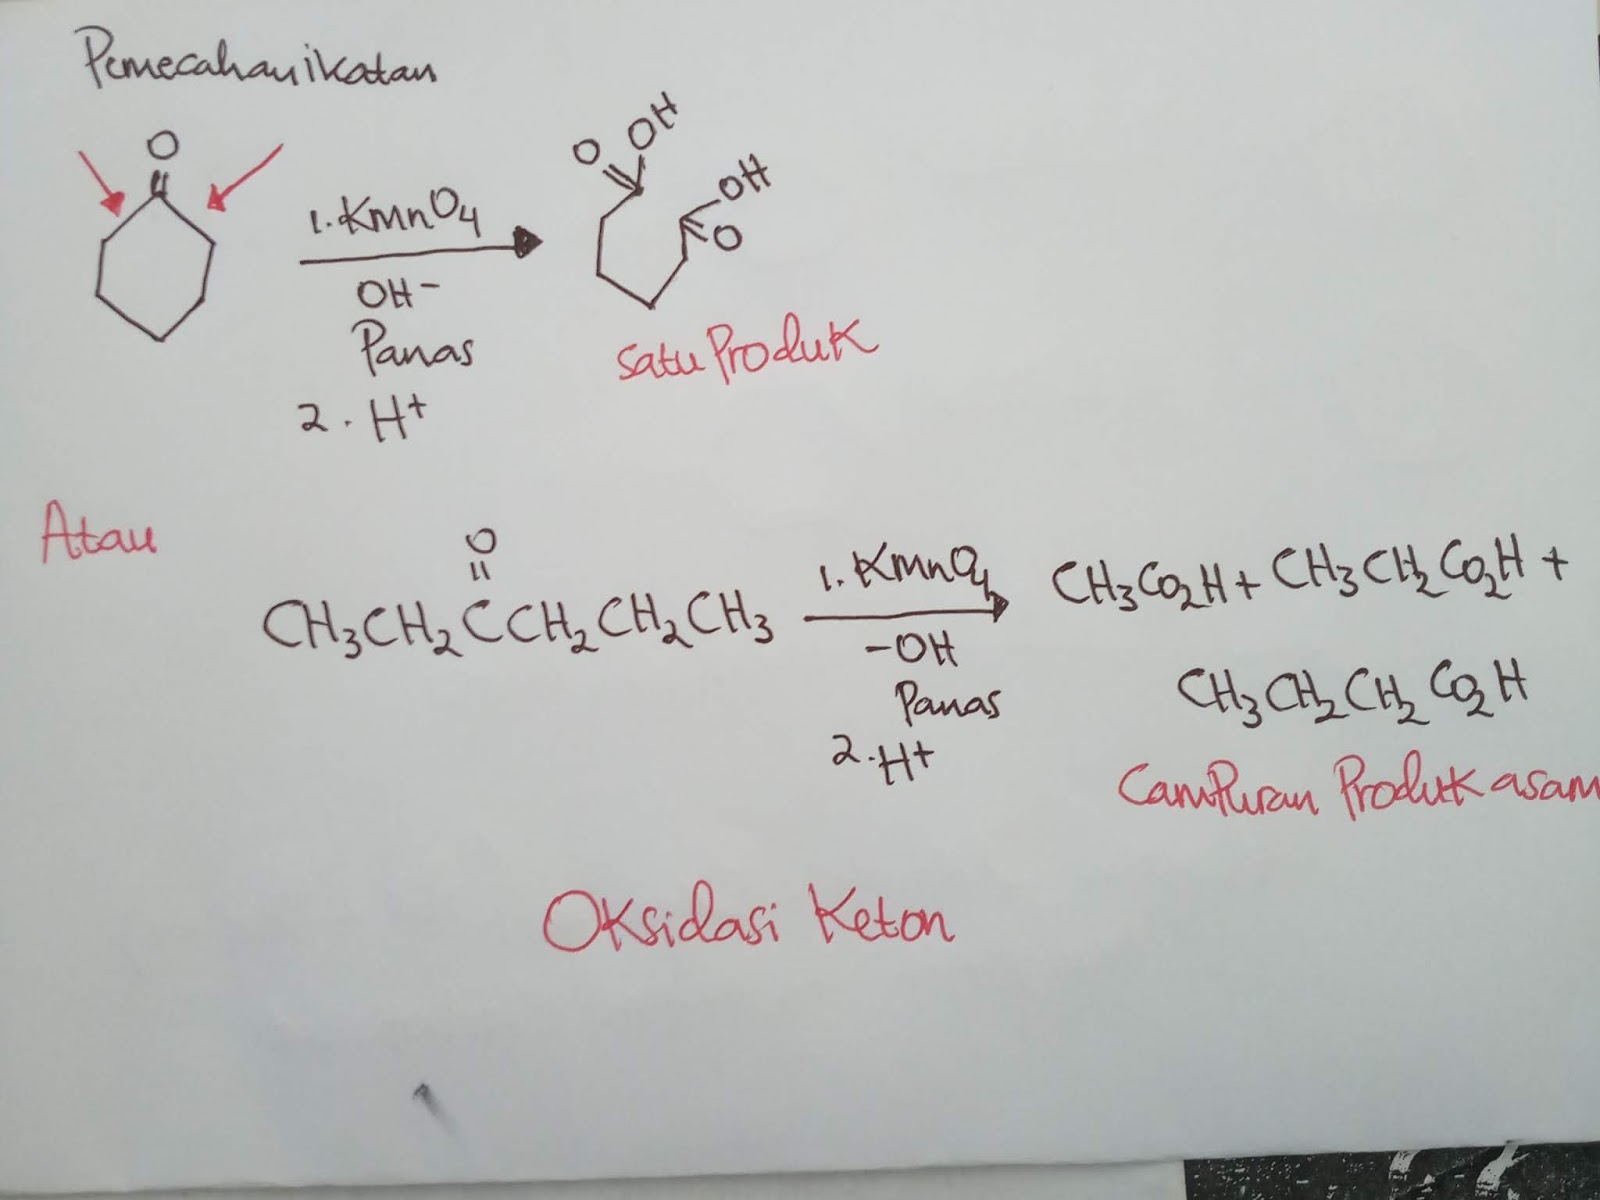 Pemecahan ikatan
O
O OH
OH
O
1. KmnO4
OH-
Panas
2. H+
Satu Produk
Atau
O
CH3CH2CCH2CH2CH3
1. KmnO4
-OH
Panas
2. H+
CH3CO2H + CH3CH2CO2H +
CH3CH2CH2CO2H
Campuran Produk asam
Oksidasi Keton